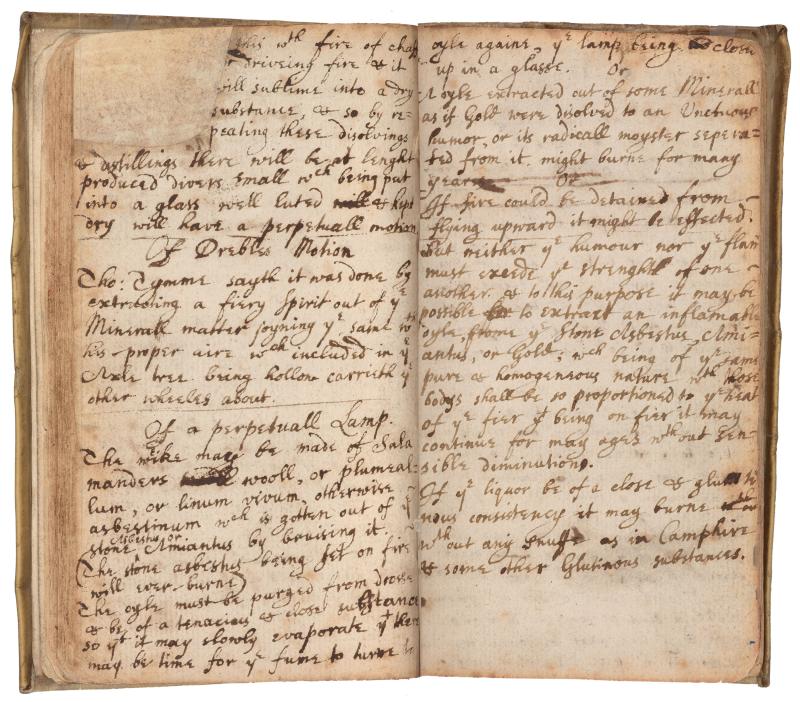 this wth fire of chaf
or driveing fire & it
will sublime into a dry
substance, & so by re-
peating these disolvings
& distillings there will be at lenght
produced divers small wch being put
into a glass well luted & kept
dry will have a perpetuall motion
Of Drebles Motion
Tho: Tymme sayth it was done by
extracting a fiery spirit out of ye
Minerall matter joyning ye same wth
his proper aire wch included in ye
Axle tree being hollow carrieth ye
other wheeles about.
Of a perpetuall Lamp.
The wike may be made of Sala
manders wooll, or plumeal-
lum, or linum vivum, otherwise
asbestinum wch is gotten out of ye
Asbestus, or
stone Amiantus by bruising it.
(The stone asbestus being set on fire
will ever burne)
The oyle must be purged from drosse
& be of a tenacious & close substance
so yt it may slowly evaporate yt there
may be time for ye fume to turne to
oyle againe, ye lamp being close
up in a glasse. Or
A oyle extracted out of some Minerall
as if Gold were disolved to an Unctuous
humor, or its radicall moyster sepera=
ted from it, might burne for many
years Or
If fire could be detained from
flying upward it might be effected.
But neither ye humour nor ye flam
must exede ye strenght of one
another. & to this purpose it may be
possible to extract an inflamable
oyle, frome ye Stone Asbestus, Ami=
antus, or Gold; wch being of ye same
pure & homogeneous nature wth those
bodys shall be so proportioned to ye heat
of ye fier yt being on fier it may
continue for may ages wthout sen-
sible diminution.
If ye liquor be of a close & gluti
nous consistency it may burne
wthout any snuffe as in Camphire
& some other Glutinous substances.